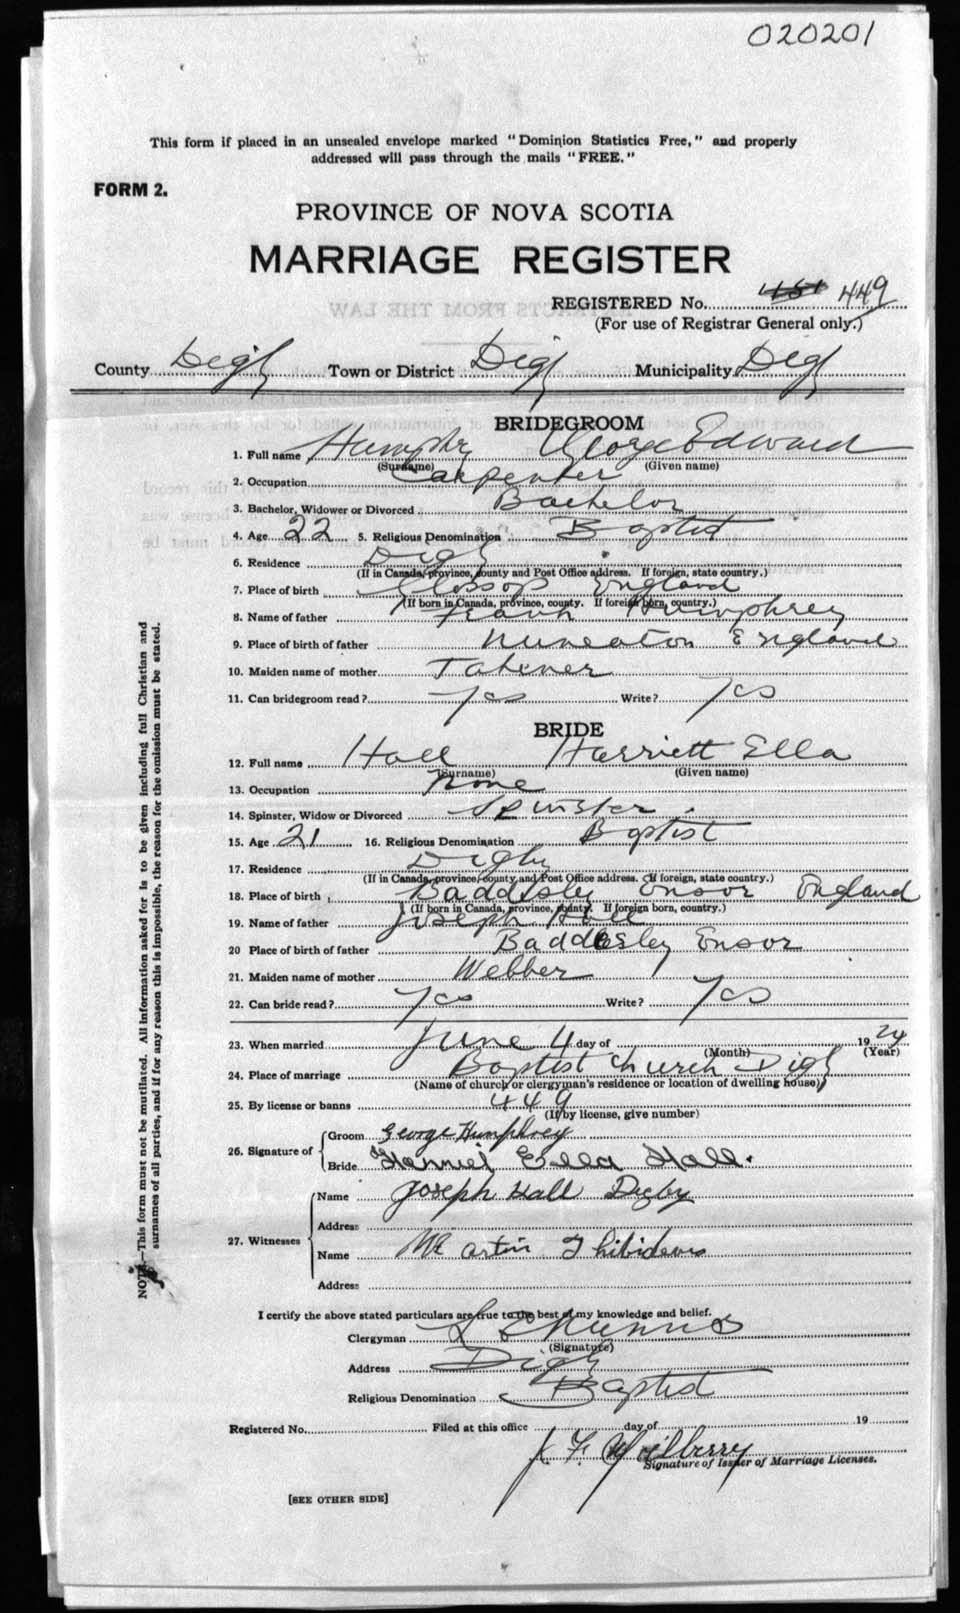 020201
This form if placed in an unsealed envelope marked "Dominion Statistics Free," and properly
addressed will pass through the mails "FREE."
FORM 2.
PROVINCE OF NOVA SCOTIA
MARRIAGE REGISTER
REGISTERED No. 451 449
(For use of Registrar General only.)
County Digby Town or District Digby Municipality Digby
BRIDEGROOM
1. Full name Humphry George Edward
(Surname) (Given name)
2. Occupation Carpenter
3. Bachelor, Widower or Divorced Bachelor
4. Age 22 5. Religious Denomination Baptist
6. Residence Digby
(If in Canada, province, county and Post Office address. If foreign, state country.)
7. Place of birth Glossop England
(If born in Canada, province, county. If foreign born, country.)
8. Name of father Frank Humphrey
9. Place of birth of father Nuneaton England
10. Maiden name of mother
11. Can bridegroom read? Yes Write? Yes
BRIDE
12. Full name Hall Harriett Ella
(Surname) (Given name)
13. Occupation None
14. Spinster, Widow or Divorced Spinster
15. Age 21 16. Religious Denomination Baptist
17. Residence Digby
(If in Canada, province, county and Post Office address. If foreign, state country.)
18. Place of birth Baddesley Ensor England
(If born in Canada, province, county. If foreign born, country.)
19. Name of father Joseph Hall
20 Place of birth of father Baddesley Ensor
21. Maiden name of mother Webber
22. Can bride read? Yes Write? Yes
23. When married June 4 day of 1924
(Month) (Year)
24. Place of marriage Baptist Church Digby
(Name of church or clergyman's residence or location of dwelling house)
25. By license or banns 449
(If by license, give number)
26. Signature of Groom George Humphrey
Bride Harriet Ella Hall.
27. Witnesses Name Joseph Hall Digby
Address
Name Martin
Address
I certify the above stated particulars are true to the best of my knowledge and belief.
Clergyman
(Signature)
Address Digby
Religious Denomination Baptist
Registered No. Filed at this office day of 19
J. F.
Signature of Issuer of Marriage Licenses.
[SEE OTHER SIDE]
NOTE.—This form must not be mutilated. All information asked for is to be given including full Christian and
surnames of all parties, and if for any reason this is impossible, the reason for the omission must be stated.